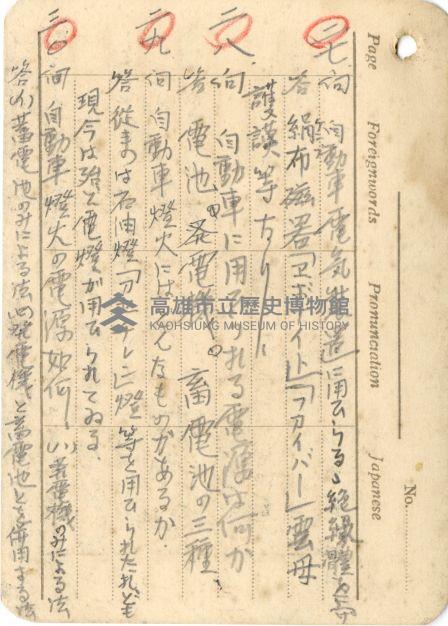 No.
Page Foreignwords Pronunciation Japanese
二七 問 自動車電気装置に用ひらるゝ絶縁體を
答 絹布磁器「エボナイト」「ファイバー」雲母
護謨等なり
二八 問 自動車に用ひられる電源は何か
答 電池 発電機 蓄電池の三種
二九 問 自動車燈火には なものがあるか
答 従来のは石油燈 燈等を用ひられたれども
現今は殆ど電燈が用ひられてゐる
三〇 問 自動車燈火の電源如何
答 蓄電池のみによる法 発電機と蓄電池とを併用する法
発電機のみによる法
高雄市立歷史博物館
KAOHSIUNG MUSEUM OF HISTORY